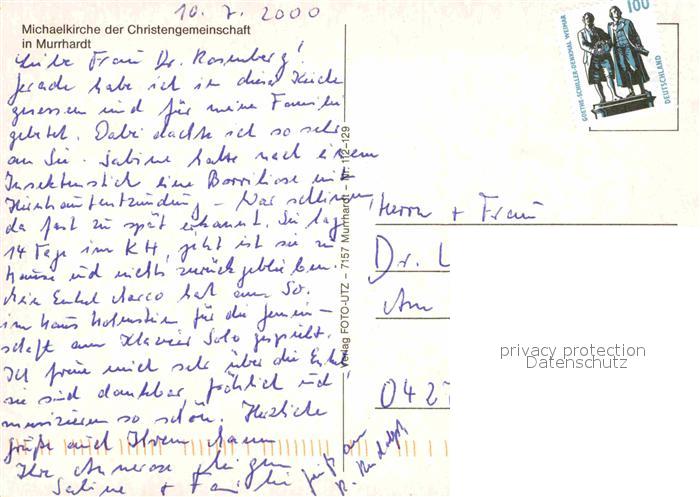 10. 7. 2000
Michaelkirche der Christengemeinschaft
in Murrhardt
Liebe Frau Dr. Rosenberg!
Gerade habe ich in dieser Kirche
gesessen und für meine Familie
gebetet. Dabei dachte ich so sehr
an Sie. Sabine hatte nach einem
Insektenstich eine Borreliose mit
Hirnhautentzündung – War schlimm,
da fast zu spät erkannt. Sie lag
14 Tage im KH, jetzt ist sie zu
Hause und nichts zurückgeblieben.
Mein Enkel Marco hat am So.
im Haus Hohenstein für die Gemein-
schaft am Klavier Solo gespielt.
Ich freue mich sehr über die Enkel
sie sind dankbar, fröhlich und
musizieren so schön. Herzliche
Grüße auch Ihrem Mann
Ihre
Sabine + Familie
Verlag FOTO-UTZ – 7157 Murrhardt – Nr. 112-129
100
GOETHE-SCHILLER-DENKMAL WEIMAR
DEUTSCHLAND
Herrn + Frau
Dr. L
Am
042
privacy protection
Datenschutz